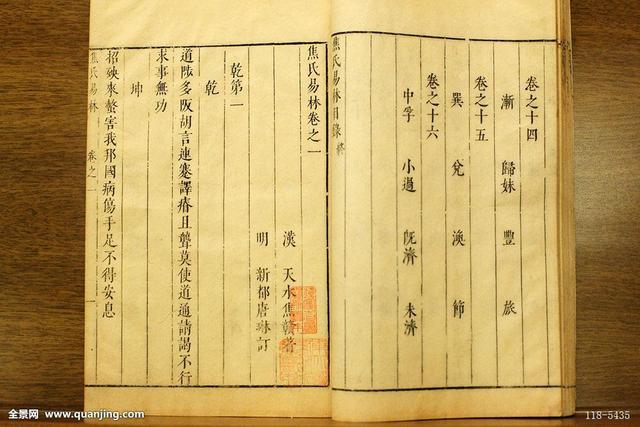 卷之十四
漸 歸妹 豐 旅
卷之十五
巽 兌 渙 節
卷之十六
中孚 小過 既濟 未濟
焦氏易林目錄終
焦氏易林卷之一
漢 天水焦贛著
明 新都唐琳訂
乾第一
乾
道陟多阪胡言連蹇譯瘖且聾莫使道通請謁不行
求事無功
坤
招殃來螫害我邦國病傷手足不得安息
焦氏易林 卷之一 一
全景网 www.quanjing.com
118-5435